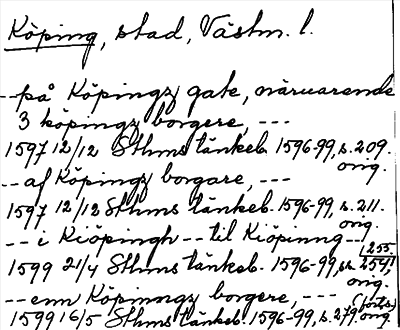 Köping, stad, Västm. l.
--på Köpingz gate, närwarende
3 köpingz borgere, ---
1597 12/12 Sthms tänkeb. 1596-99, s. 209.
orig.
--af Köpingz borgare, ---
1597 12/12 Sthms tänkeb. 1596-99, s. 211.
orig.
--i Kiöpingh--til Kiöpinng--
1599 21/4 Sthms tänkeb. 1596-99, ss. 254, 255
orig.
--enn Köpinngz borgere, ---
(forts.)
1599 16/5 Sthms tänkeb. 1596-99, s. 279. orig.